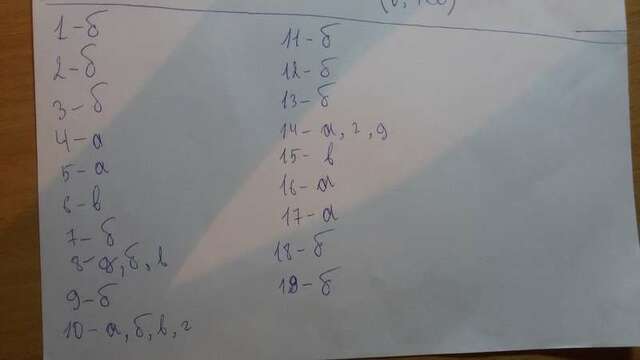 1-б
2-б
3-б
4-а
5-а
6-в
7-б
8-а,б,в
9-б
10-а,б,в,г
11-б
12-б
13-б
14-а,г,д
15-в
16-а
17-а
18-б
19-б